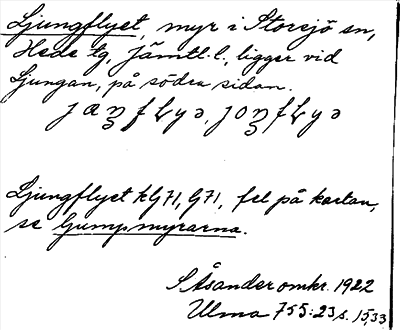 Ljungflyet, myr i Storsjö sn,
Hede tg, Jämtl. l., ligger vid
Ljungan, på södra sidan.
Ljungflyet kG71, G71, fel på kartan,
se Gumpmyrarna.
S Åsander omkr. 1922
Ulma 755:23, s. 15, 33